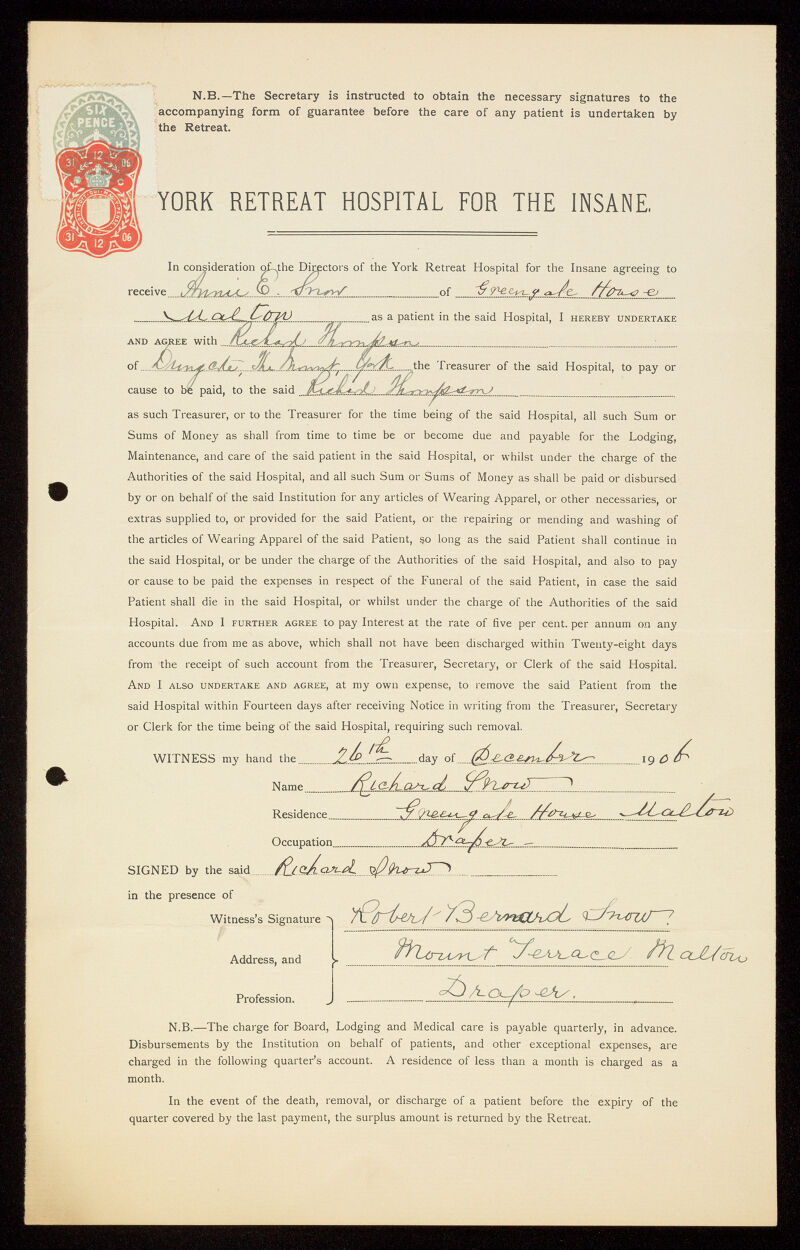 N.B.—The Secretary is instructed to obtain the necessary signatures to the
accompanying form of guarantee before the care of any patient is undertaken by
the Retreat.
SIX
PENCE
31 12 06
31 12 06
YORK RETREAT HOSPITAL FOR THE INSANE.
In consideration of the Directors of the York Retreat Hospital for the Insane agreeing to
receive Annie E. Snow of Greengate House
Malton as a patient in the said Hospital, I HEREBY UNDERTAKE
AND AGREE with Richard Thompson
of The Mount, York the Treasurer of the said Hospital, to pay or
cause to be paid, to the said Richard Thompson
as such Treasurer, or to the Treasurer for the time being of the said Hospital, all such Sum or
Sums of Money as shall from time to time be or become due and payable for the Lodging,
Maintenance, and care of the said patient in the said Hospital, or whilst under the charge of the
Authorities of the said Hospital, and all such Sum or Sums of Money as shall be paid or disbursed
by or on behalf of the said Institution for any articles of Wearing Apparel, or other necessaries, or
extras supplied to, or provided for the said Patient, or the repairing or mending and washing of
the articles of Wearing Apparel of the said Patient, so long as the said Patient shall continue in
the said Hospital, or be under the charge of the Authorities of the said Hospital, and also to pay
or cause to be paid the expenses in respect of the Funeral of the said Patient, in case the said
Patient shall die in the said Hospital, or whilst under the charge of the Authorities of the said
Hospital. AND I FURTHER AGREE to pay Interest at the rate of five per cent. per annum on any
accounts due from me as above, which shall not have been discharged within Twenty-eight days
from the receipt of such account from the Treasurer, Secretary, or Clerk of the said Hospital.
AND I ALSO UNDERTAKE AND AGREE, at my own expense, to remove the said Patient from the
said Hospital within Fourteen days after receiving Notice in writing from the Treasurer, Secretary
or Clerk for the time being of the said Hospital, requiring such removal.
WITNESS my hand the 26th day of December 1906
Name Richard Snow
Residence Greengate House Malton
Occupation Draper -
SIGNED by the said Richard Snow
in the presence of
Witness's Signature Robert Bernard Snow
Address, and Mount Terrace Malton
Profession. Draper.
N.B.—The charge for Board, Lodging and Medical care is payable quarterly, in advance.
Disbursements by the Institution on behalf of patients, and other exceptional expenses, are
charged in the following quarter's account. A residence of less than a month is charged as a
month.
In the event of the death, removal, or discharge of a patient before the expiry of the
quarter covered by the last payment, the surplus amount is returned by the Retreat.